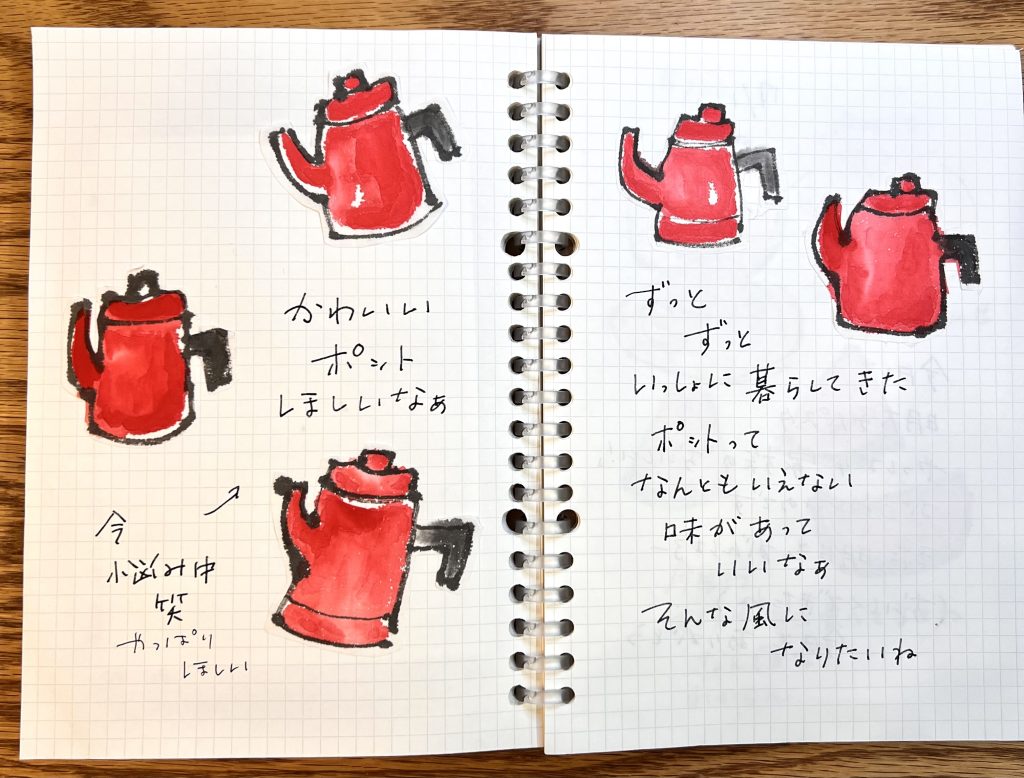 かわいい
ポット
ほしいなぁ
今
小悩み中
笑
やっぱり
ほしい
ずっと
ずっと
いっしょに暮らしてきた
ポットって
なんともいえない
味があって
いいなぁ
そんな風に
なりたいね